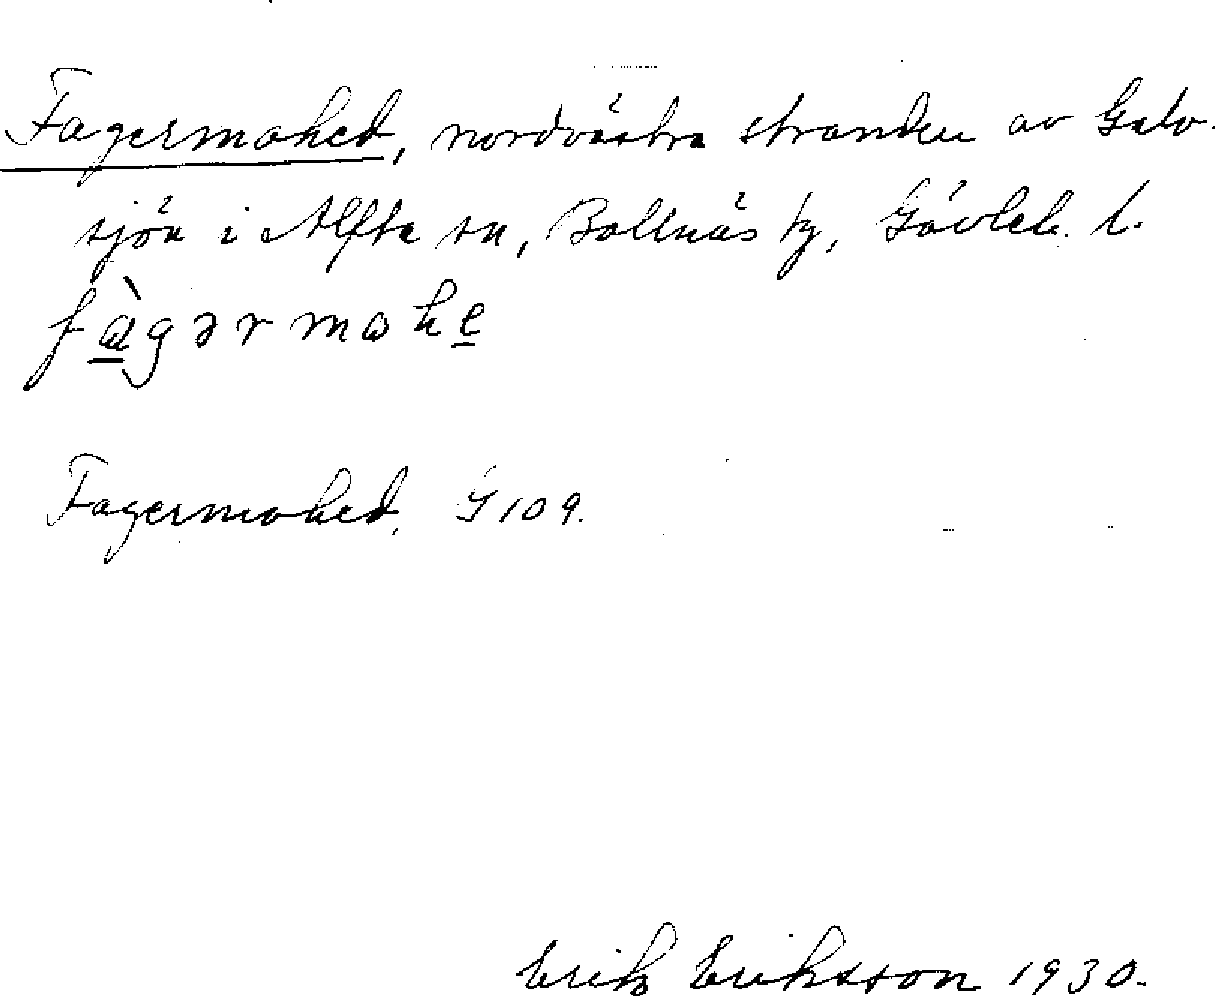 Fagermohed, nordvästra stranden av Galv-
sjön i Alfta sn, Bollnäs tg, Gävleb. l.
fàgərmohe
Fagermohed. G 109.
Erik Eriksson 1930.